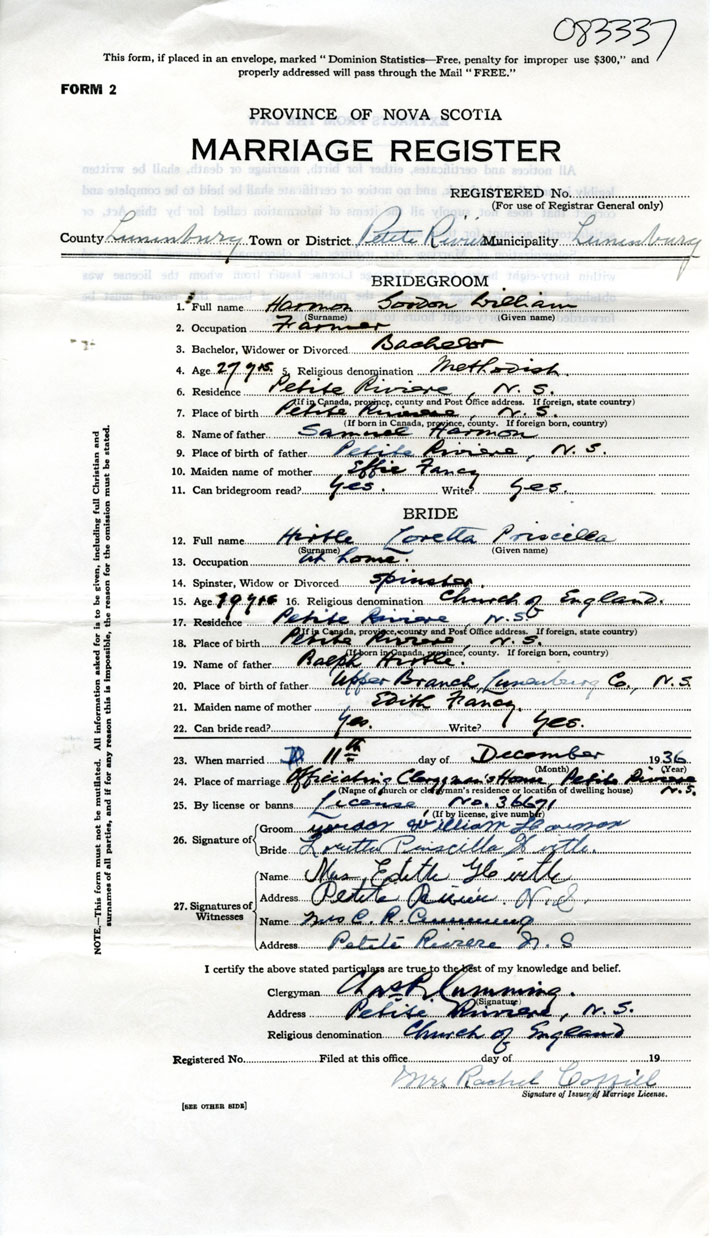 083337
This form, if placed in an envelope, marked "Dominion Statistics—Free, penalty for improper use $300," and
properly addressed will pass through the Mail "FREE."
FORM 2
PROVINCE OF NOVA SCOTIA
MARRIAGE REGISTER
REGISTERED No.
(For use of Registrar General only)
County Lunenburg Town or District Petite Riviere Municipality Lunenburg
BRIDEGROOM
1. Full name Harmon Gordon William
(Surname) (Given name)
2. Occupation Farmer
3. Bachelor, Widower or Divorced Bachelor
4. Age 27 yrs. 5. Religious denomination Methodist.
6. Residence Petite Riviere, N.S.
(If in Canada, province, county and Post Office address. If foreign, state country)
7. Place of birth Petite Riviere, N.S.
(If born in Canada, province, county. If foreign born, country)
8. Name of father Samuel Harmon
9. Place of birth of father Petite Riviere, N.S.
10. Maiden name of mother Effie Fancy
11. Can bridegroom read? Yes. Write? Yes.
BRIDE
12. Full name Hirtle Loretta Priscilla
(Surname) (Given name)
13. Occupation at home.
14. Spinster, Widow or Divorced Spinster.
15. Age 19 yrs 16. Religious denomination Church of England.
17. Residence Petite Riviere, N.S.
(If in Canada, province, county and Post Office address. If foreign, state country)
18. Place of birth Petite Riviere, N.S.
(If born in Canada, province, county. If foreign born, country)
19. Name of father Ralph Hirtle.
20. Place of birth of father Upper Branch, Lunenburg Co., N.S.
21. Maiden name of mother Edith Fancy.
22. Can bride read? Yes. Write? Yes.
23. When married 11th day of December 1936
(Month) (Year)
24. Place of marriage Officiating Clergyman's Home, Petite Riviere N.S.
(Name of church or clergyman's residence or location of dwelling house)
25. By license or banns License No. 36671
(If by license, give number)
26. Signature of Groom Gordon William Harmon
Bride Loretta Priscilla Hirtle.
27. Signatures of Witnesses
Name Mrs Edith Hirtle
Address Petite Riviere N.S.
Name Mrs C. R. Cumming
Address Petite Riviere N.S
I certify the above stated particulars are true to the best of my knowledge and belief.
Clergyman Chas R. Cumming.
(Signature)
Address Petite Riviere, N.S.
Religious denomination Church of England
Registered No. Filed at this office day of 19
Mrs Rachel Coffill
Signature of Issuer of Marriage License.
[SEE OTHER SIDE]
NOTE.—This form must not be mutilated. All information asked for is to be given, including full Christian and
surnames of all parties, and if for any reason this is impossible, the reason for the omission must be stated.